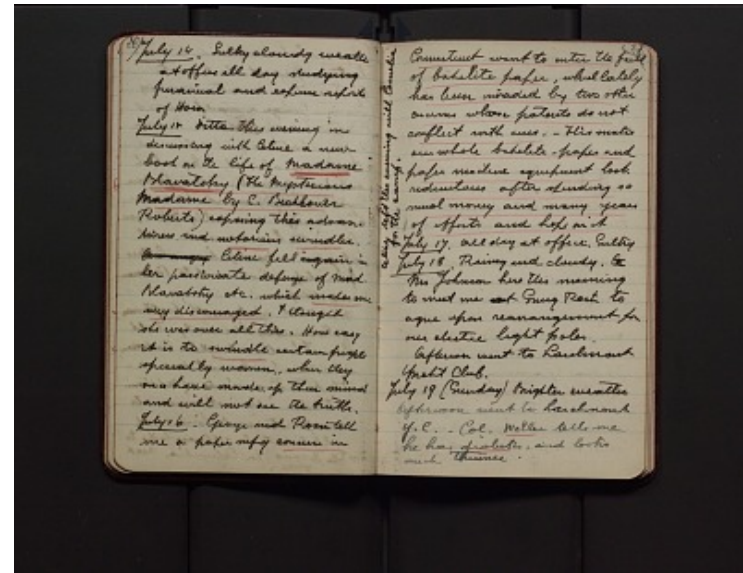 July 14. Sulky cloudy weather
at office all day studying
financial and expense reports
of
July 15 Ditto This evening in
discussing with Celine a new
book on the life of Madame
Blavatsky (The Mysterious
Madame by C. Bechhofer
Roberts) exposing this adven
turess and notorious swindler.
Celine fell again in
her passionate defense of Mad
Blavatsky etc. which makes me
very discouraged. I thought
she was over all this. How easy
it is to swindle certain people
specially women, when they
once have made up their mind
and will not see the truth.
July 16. George and tell
me a paper mfg concern in
Celine left this evening with
for the camp.
Connecticut want to enter the field
of bakelite paper, which lately
has been invaded by two other
concerns whose patents do not
conflict with ours. - This makes
our whole bakelite-paper and
paper machine equipment look
ridiculous after spending so
much money and many years
of efforts and hope on it
July 17. All day at office. Sultry
July 18. Rainy and cloudy.
Mrs Johnson here this morning
to meet me to
agree upon rearrangement for
our electric light poles.
Afternoon went to Larchmont
Yacht Club.
July 19 (Sunday) Brighter weather
Afternoon went to Larchmont
Y.C. - Col. tells me
he has diabetes, and looks
much thinner.